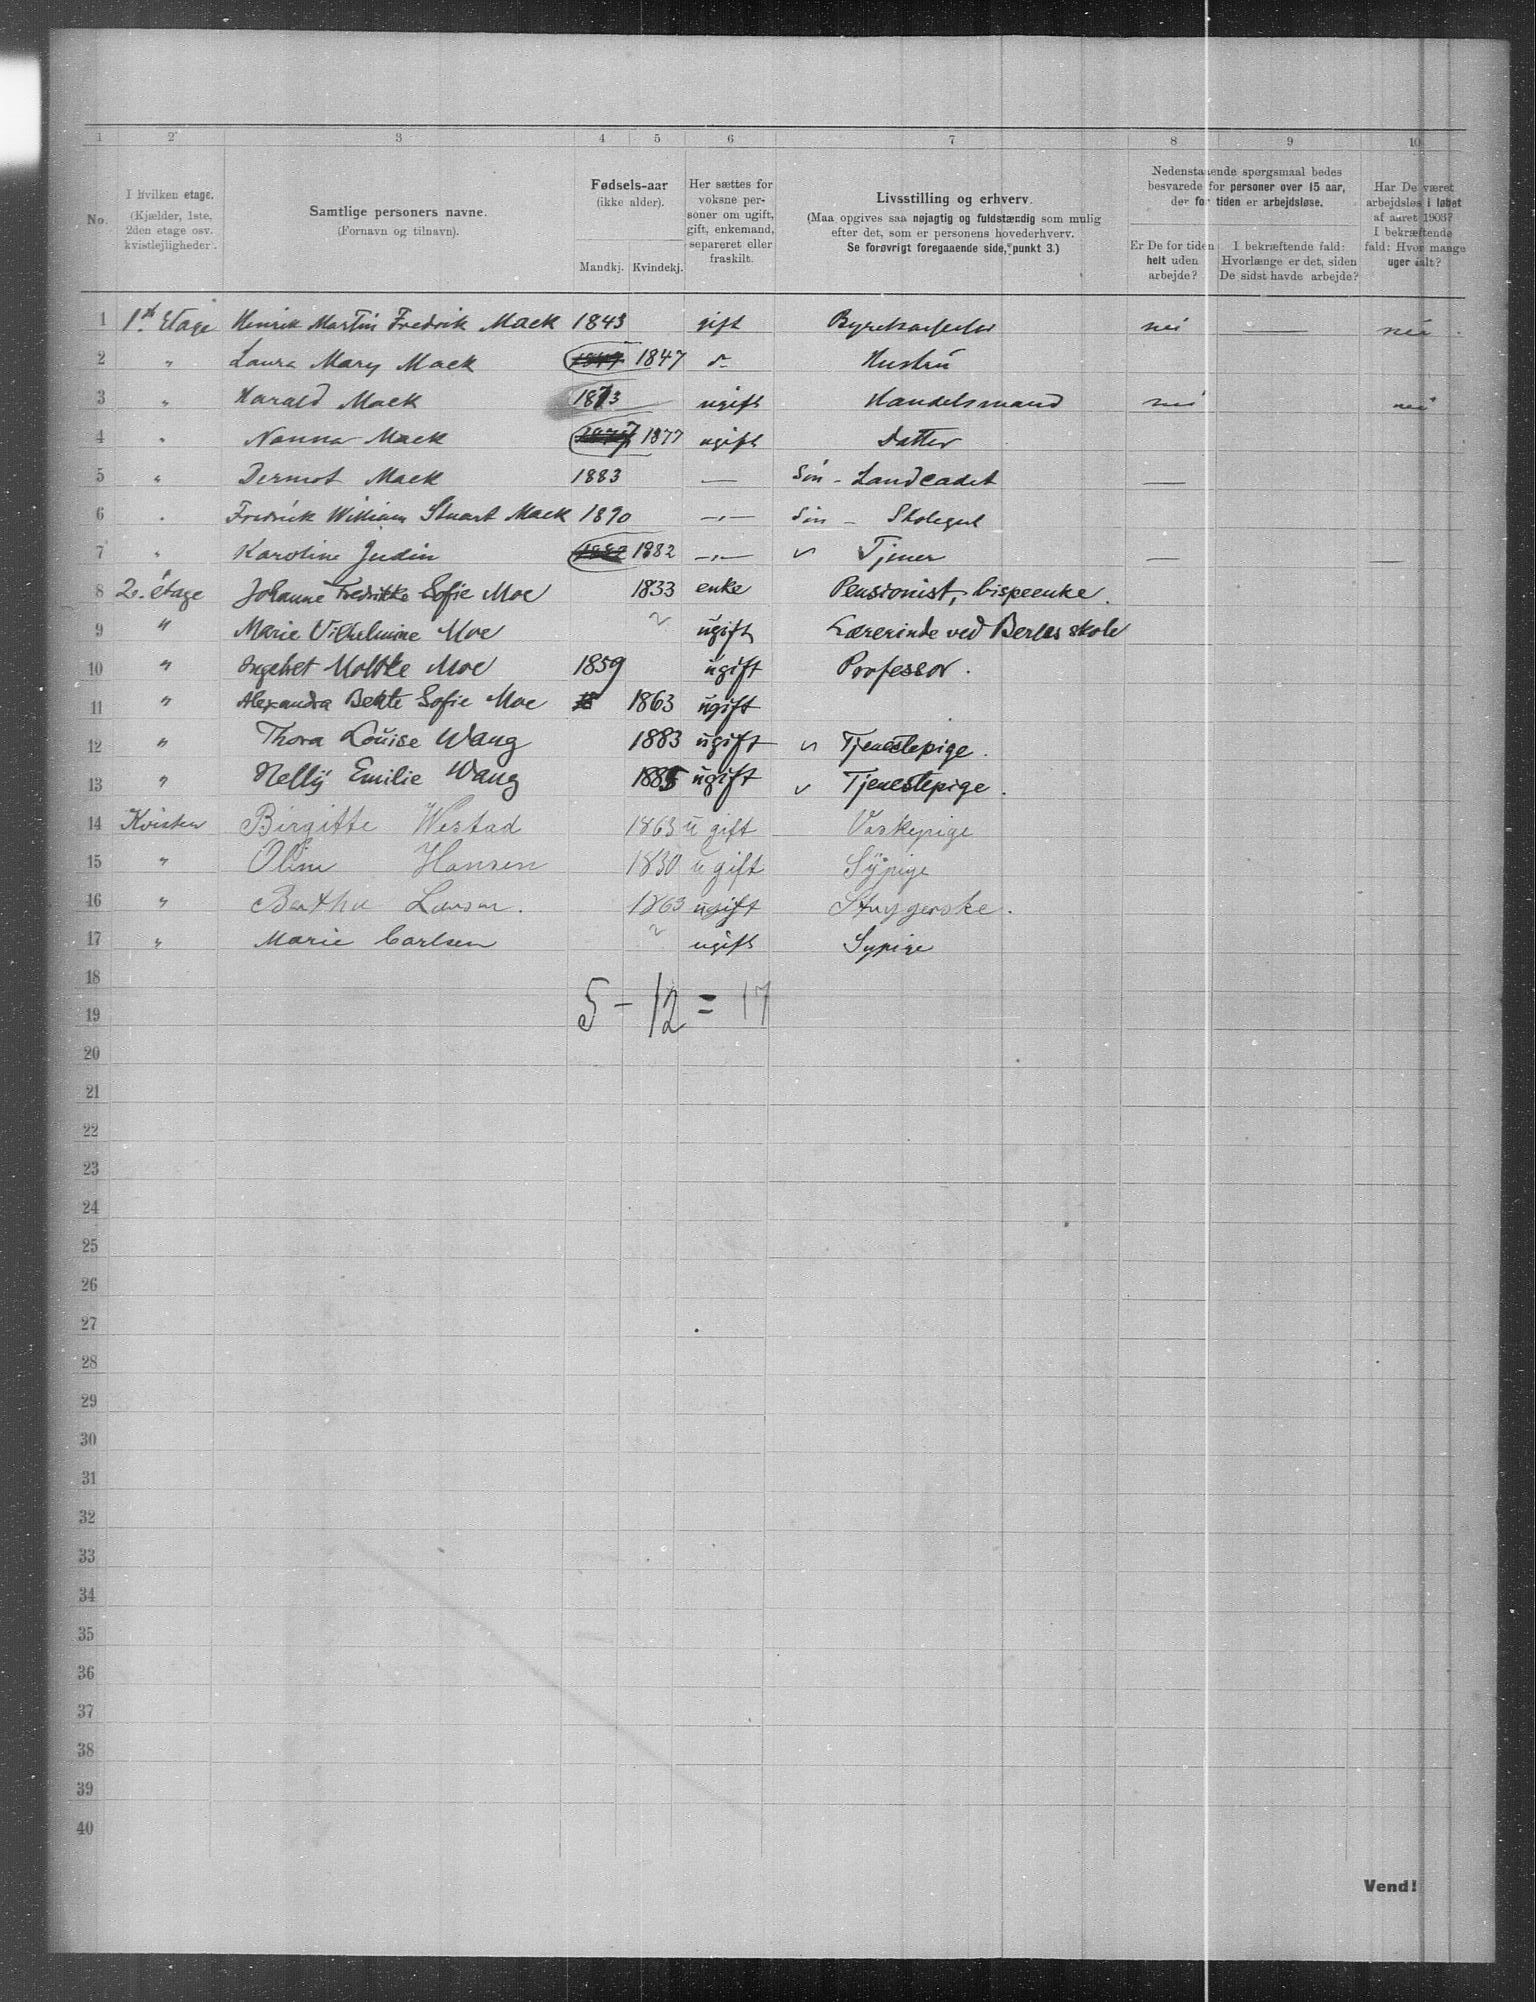 1 2 3 4 5 6 7 8 9 10
No.
I hvilken etage.
(Kjælder, 1ste,
2den etage osv.
kvistlejligheder).
Samtlige personers navne.
(Fornavn og tilnavn).
Fødsels-aar
(ikke alder).
Mandkj. Kvindekj.
Her sættes for
voksne per-
soner om ugift,
gift, enkemand,
separeret eller
fraskilt.
Livsstilling og erhverv.
(Maa opgives saa nøjagtig og fuldstændig som mulig
efter det, som er personens hovederhverv.
Se forøvrigt foregaaende side, punkt 3.)
Nedenstaaende spørgsmaal bedes
besvarede for personer over 15 aar,
der for tiden er arbejdsløse.
Er De for tiden
helt uden
arbejde?
I bekræftende fald:
Hvorlænge er det, siden
De sidst havde arbejde?
Har De været
arbejdsløs i løbet
af aaret 1903?
I bekræftende
fald: Hvor mange
uger ialt?
1 1st Etage Henrik Martin Fredrik Mack 1843 gift nei — nei
2 " Laura Mary Mack 1847 d- Hustru
3 " Harald Mack 1873 ugift Handelsmand nei nei
4 " Nanna Mack 1877 ugift Datter
5 " Dermot Mack 1883 — Søn - Landcadet —
6 " Fredrik William Stuart Mack 1890 —"— Søn - Skolegut
7 " Karoline Judin 1882 —"— Tjener — —
8 2. étage Johanne Fredrikke Sofie Moe 1833 enke Pensionist, bispeenke.
9 " Marie Vilhelmine Moe ? ugift Lærerinde ved Berles skole
10 " Ingebret Moltke Moe 1859 ugift Professor.
11 " Alexandra Bekte Sofie Moe 18 1863 ugift
12 " Thora Louise Wang 1883 ugift Tjenestepige.
13 " Nelly Emilie Wang 1885 ugift Tjenestepige.
14 Kvisten Birgitte Westad 1863 ugift Vaskepige
15 " Oline Hansen 1830 ugift Sypige
16 " Bertha Larsen. 1863 ugift Strygerske.
17 " Marie Carlsen ? ugift Sypige
18
5 - 12 = 17
19
20
21
22
23
24
25
26
27
28
29
30
31
32
33
34
35
36
37
38
39
40
Vend!